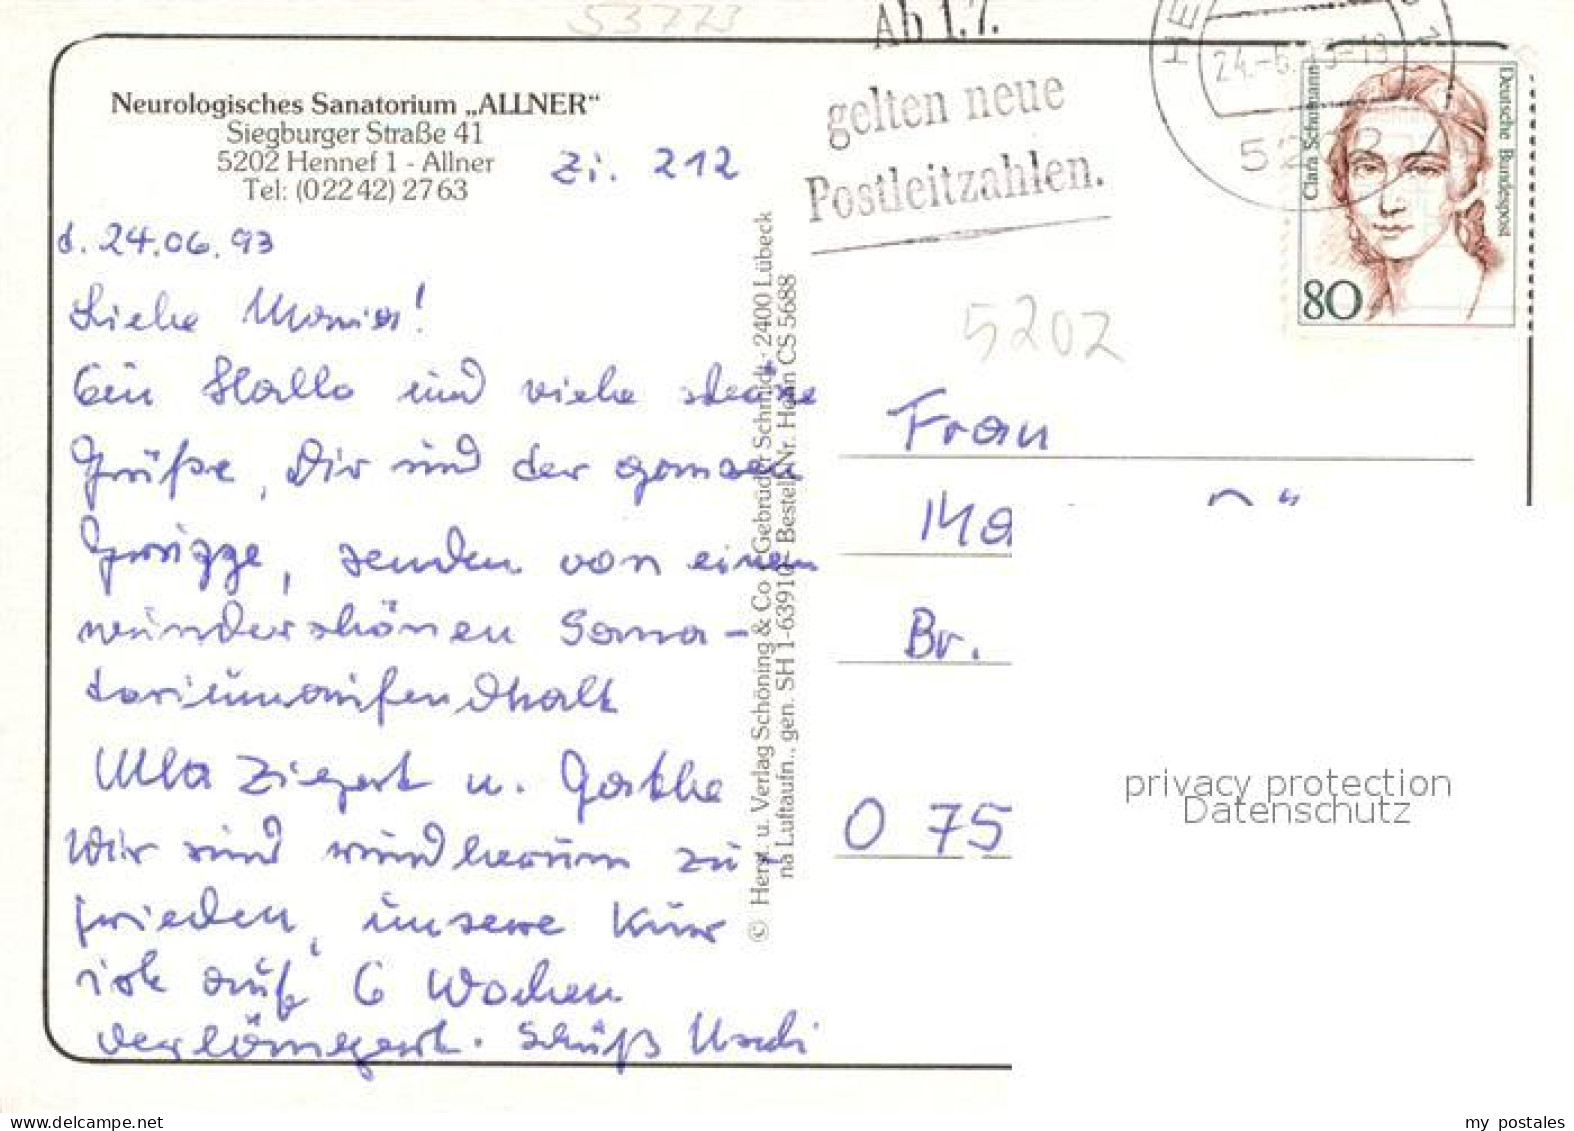 53773
Ab 1.7.
gelten neue
Postleitzahlen.
24.-6.93-19
Deutsche Bundespost
Clara Schumann
80
Neurologisches Sanatorium „ALLNER“
Siegburger Straße 41
5202 Hennef 1 - Allner
Tel: (0 22 42) 27 63
Zi. 212
d. 24.06.93
Liebe
Ein Hallo und viele
Grüße, Dir und der ganzen
Gruppe, senden von einem
wunderschönen Sana-
toriumaufendhalt
Ulla Ziegert u.
Wir sind rundherum zu-
frieden, unsere Kur
ist auf 6 Wochen
verlängert. Uschi
© Herst. u. Verlag Schöning & Co + Gebrüder Schmidt · 2400 Lübeck
na Luftaufn., gen. SH 1-63910 - Bestell-Nr. Henn CS 5688
5202
Frau
Br.
O 75
privacy protection
Datenschutz
my postales